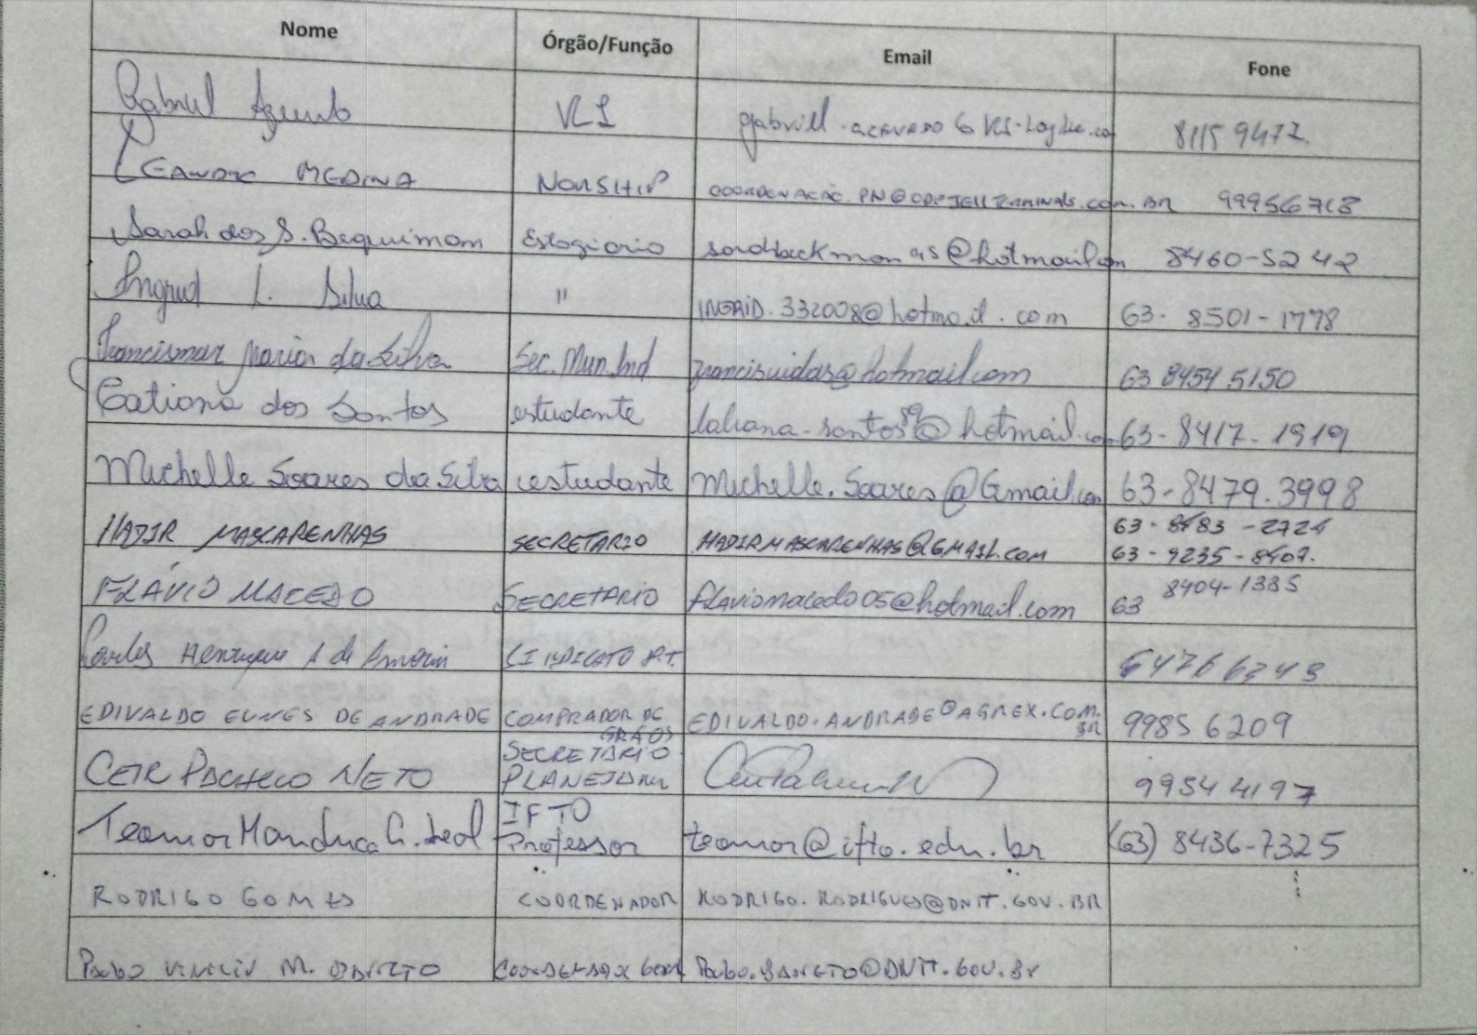 Nome Órgão/Função Email Fone
Gabriel Azevedo VLI 8115 9477
MEDINA NORSHIP 99956718
Sarah dos S. Bequimam Estagiario @hotmail.com 8460-5242
Ingrid L. Silva " INGRID.332008@hotmail.com 63- 8501-1778
Francismar Maria da Silva Sec. Mun. Ind @hotmail.com 63 8454 5150
Tatiana dos Santos estudante tatiana-santos89@hotmail.com 63-8417-1919
Michelle Soares da Silva estudante Michelle.Soares@Gmail.com 63-8479.3998
HADIR MASCARENHAS SECRETARIO HADIRMASCARENHAS@GMAIL.COM 63-8483-2724
63-9235-8407.
FLÁVIO MACEDO SECRETARIO flaviomacedo05@hotmail.com 63 8404-1385
Carlos Henrique A de Amorim SINDICATO
EDIVALDO EUNES DE ANDRADE COMPRADOR DE GRÃOS EDIVALDO.ANDRADE@AGREX.COM.BR 99856209
CEIR PACHECO NETO SECRETARIO 99544197
Teamor Manduca C. Leal IFTO Professor teamor@ifto.edu.br (63) 8436-7325
RODRIGO GOMES COORDENADOR RODRIGO.RODRIGUES@DNIT.GOV.BR
M. COORDENADOR @DNIT.GOV.BR